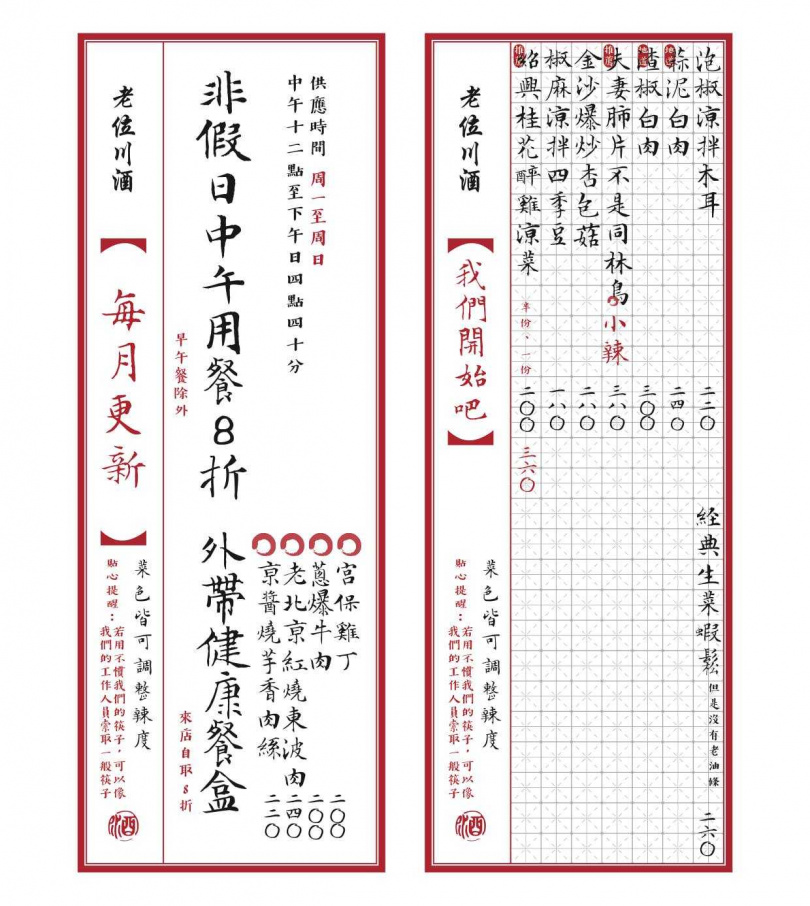 泡椒涼拌木耳 二二〇
經典生菜蝦鬆 但是沒有老油條 二六〇
蒜泥白肉 二四〇
渣椒白肉 三〇〇
夫妻肺片不是同林鳥 小辣 三八〇
金沙爆炒杏包菇 二八〇
椒麻涼拌四季豆 一八〇
紹興桂花醉雞涼菜 半份、一份 二〇〇 三六〇
老位川酒
我們開始吧
菜色皆可調整辣度
貼心提醒：若用不慣我們的筷子，可以像
我們的工作人員索取一般筷子
供應時間 周一至周日
中午十二點至下午日四點四十分
非假日中午用餐8折
早午餐除外
宮保雞丁 二〇〇
蔥爆牛肉 二〇〇
老北京紅燒東波肉 二四〇
京醬燒芋香肉絲 二二〇
外帶健康餐盒
來店自取8折
老位川酒
每月更新
菜色皆可調整辣度
貼心提醒：若用不慣我們的筷子，可以像
我們的工作人員索取一般筷子